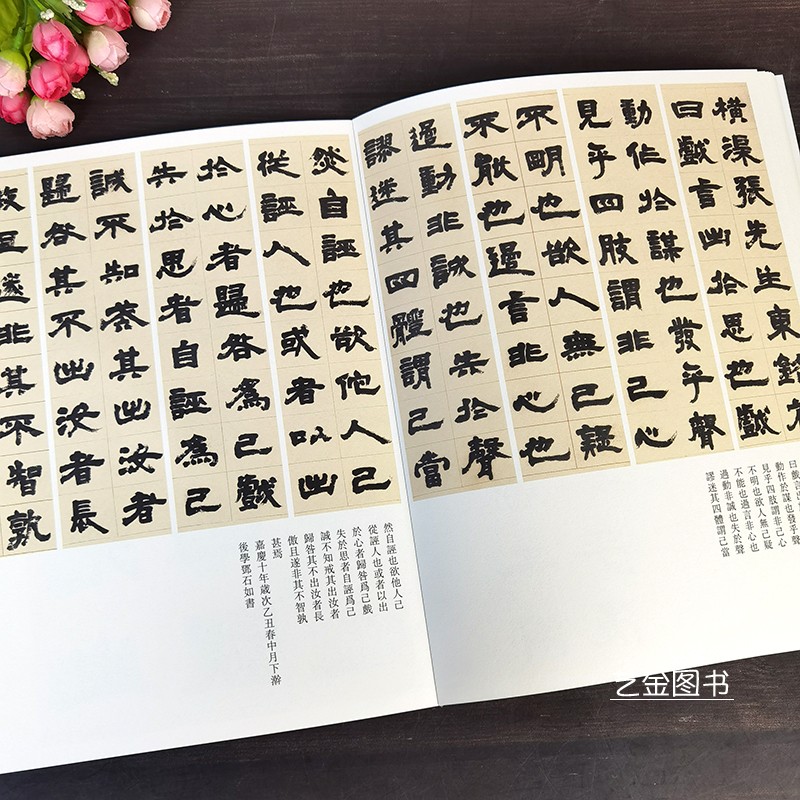 橫渠張先生東銘
曰戲言出於思也戲
動作於謀也發乎聲
見乎四肢謂非己心
不明也欲人無己疑
不能也過言非心也
過動非誠也失於聲
謬迷其四體謂己當
曰戲言出
動作於謀也發乎聲
見乎四肢謂非己心
不明也欲人無己疑
不能也過言非心也
過動非誠也失於聲
謬迷其四體謂己當
然自誣也欲他人己
從誣人也或者以出
於心者歸咎爲己戲
失於思者自誣爲己
誠不知戒其出汝者
歸咎其不出汝者長
遂非其不智孰
然自誣也欲他人己
從誣人也或者以出
於心者歸咎爲己戲
失於思者自誣爲己
誠不知戒其出汝者
歸咎其不出汝者長
傲且遂非其不智孰
甚焉
嘉慶十年歲次乙丑春中月下澣
後學鄧石如書
金图书